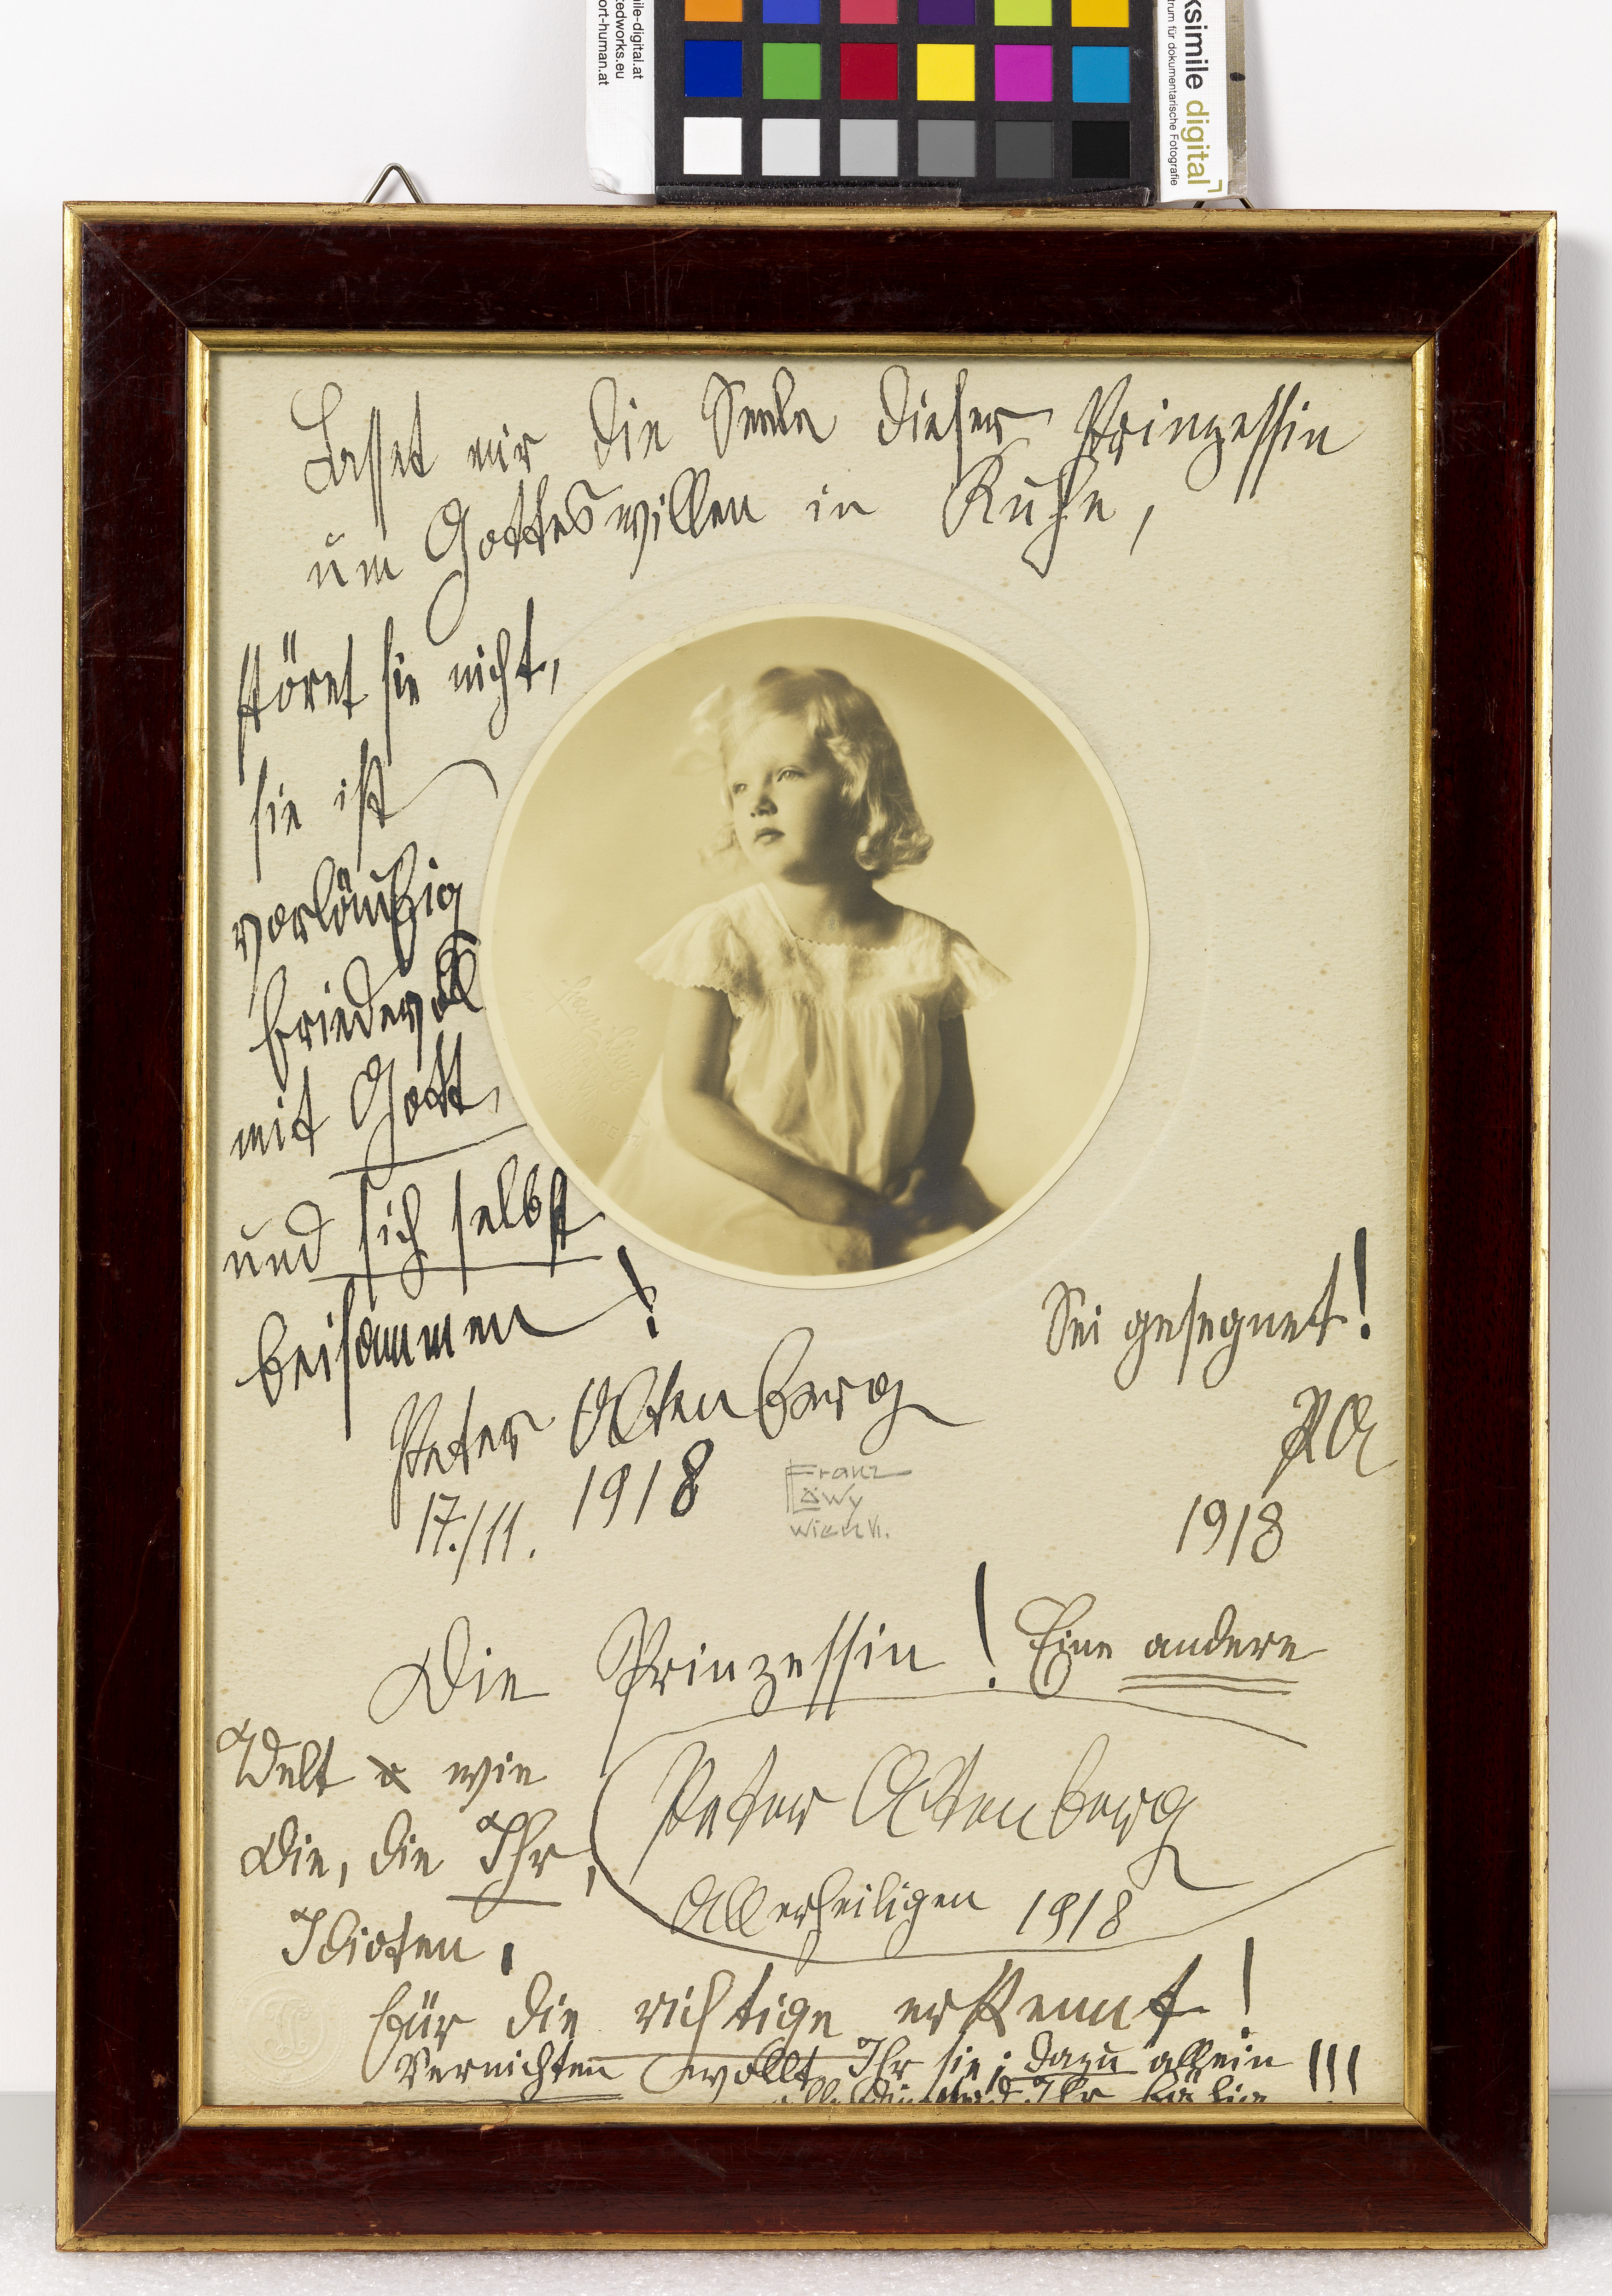 ile-digital.at
tedworks.eu
ort-human.at
ksimile digital
trum für dokumentarische Fotografie
Lasset mir die Seele dieser Prinzessin
um Gotteswillen in Ruhe,
störet sie nicht,
sie ist
vorläufig
friedevoll
mit Gott,
und sich selbst
beisammen!
Sei gesegnet!
PA
1918
Peter Altenberg
17./11. 1918
Franz
Löwy
Wien VI.
Die Prinzessin! Eine andere
Welt wie
Die, die Ihr,
Idioten,
Peter Altenberg
Allerheiligen 1918
für die richtige erkennt!
Vernichten wollt Ihr sie; dazu allein !!!
seid Ihr fähig